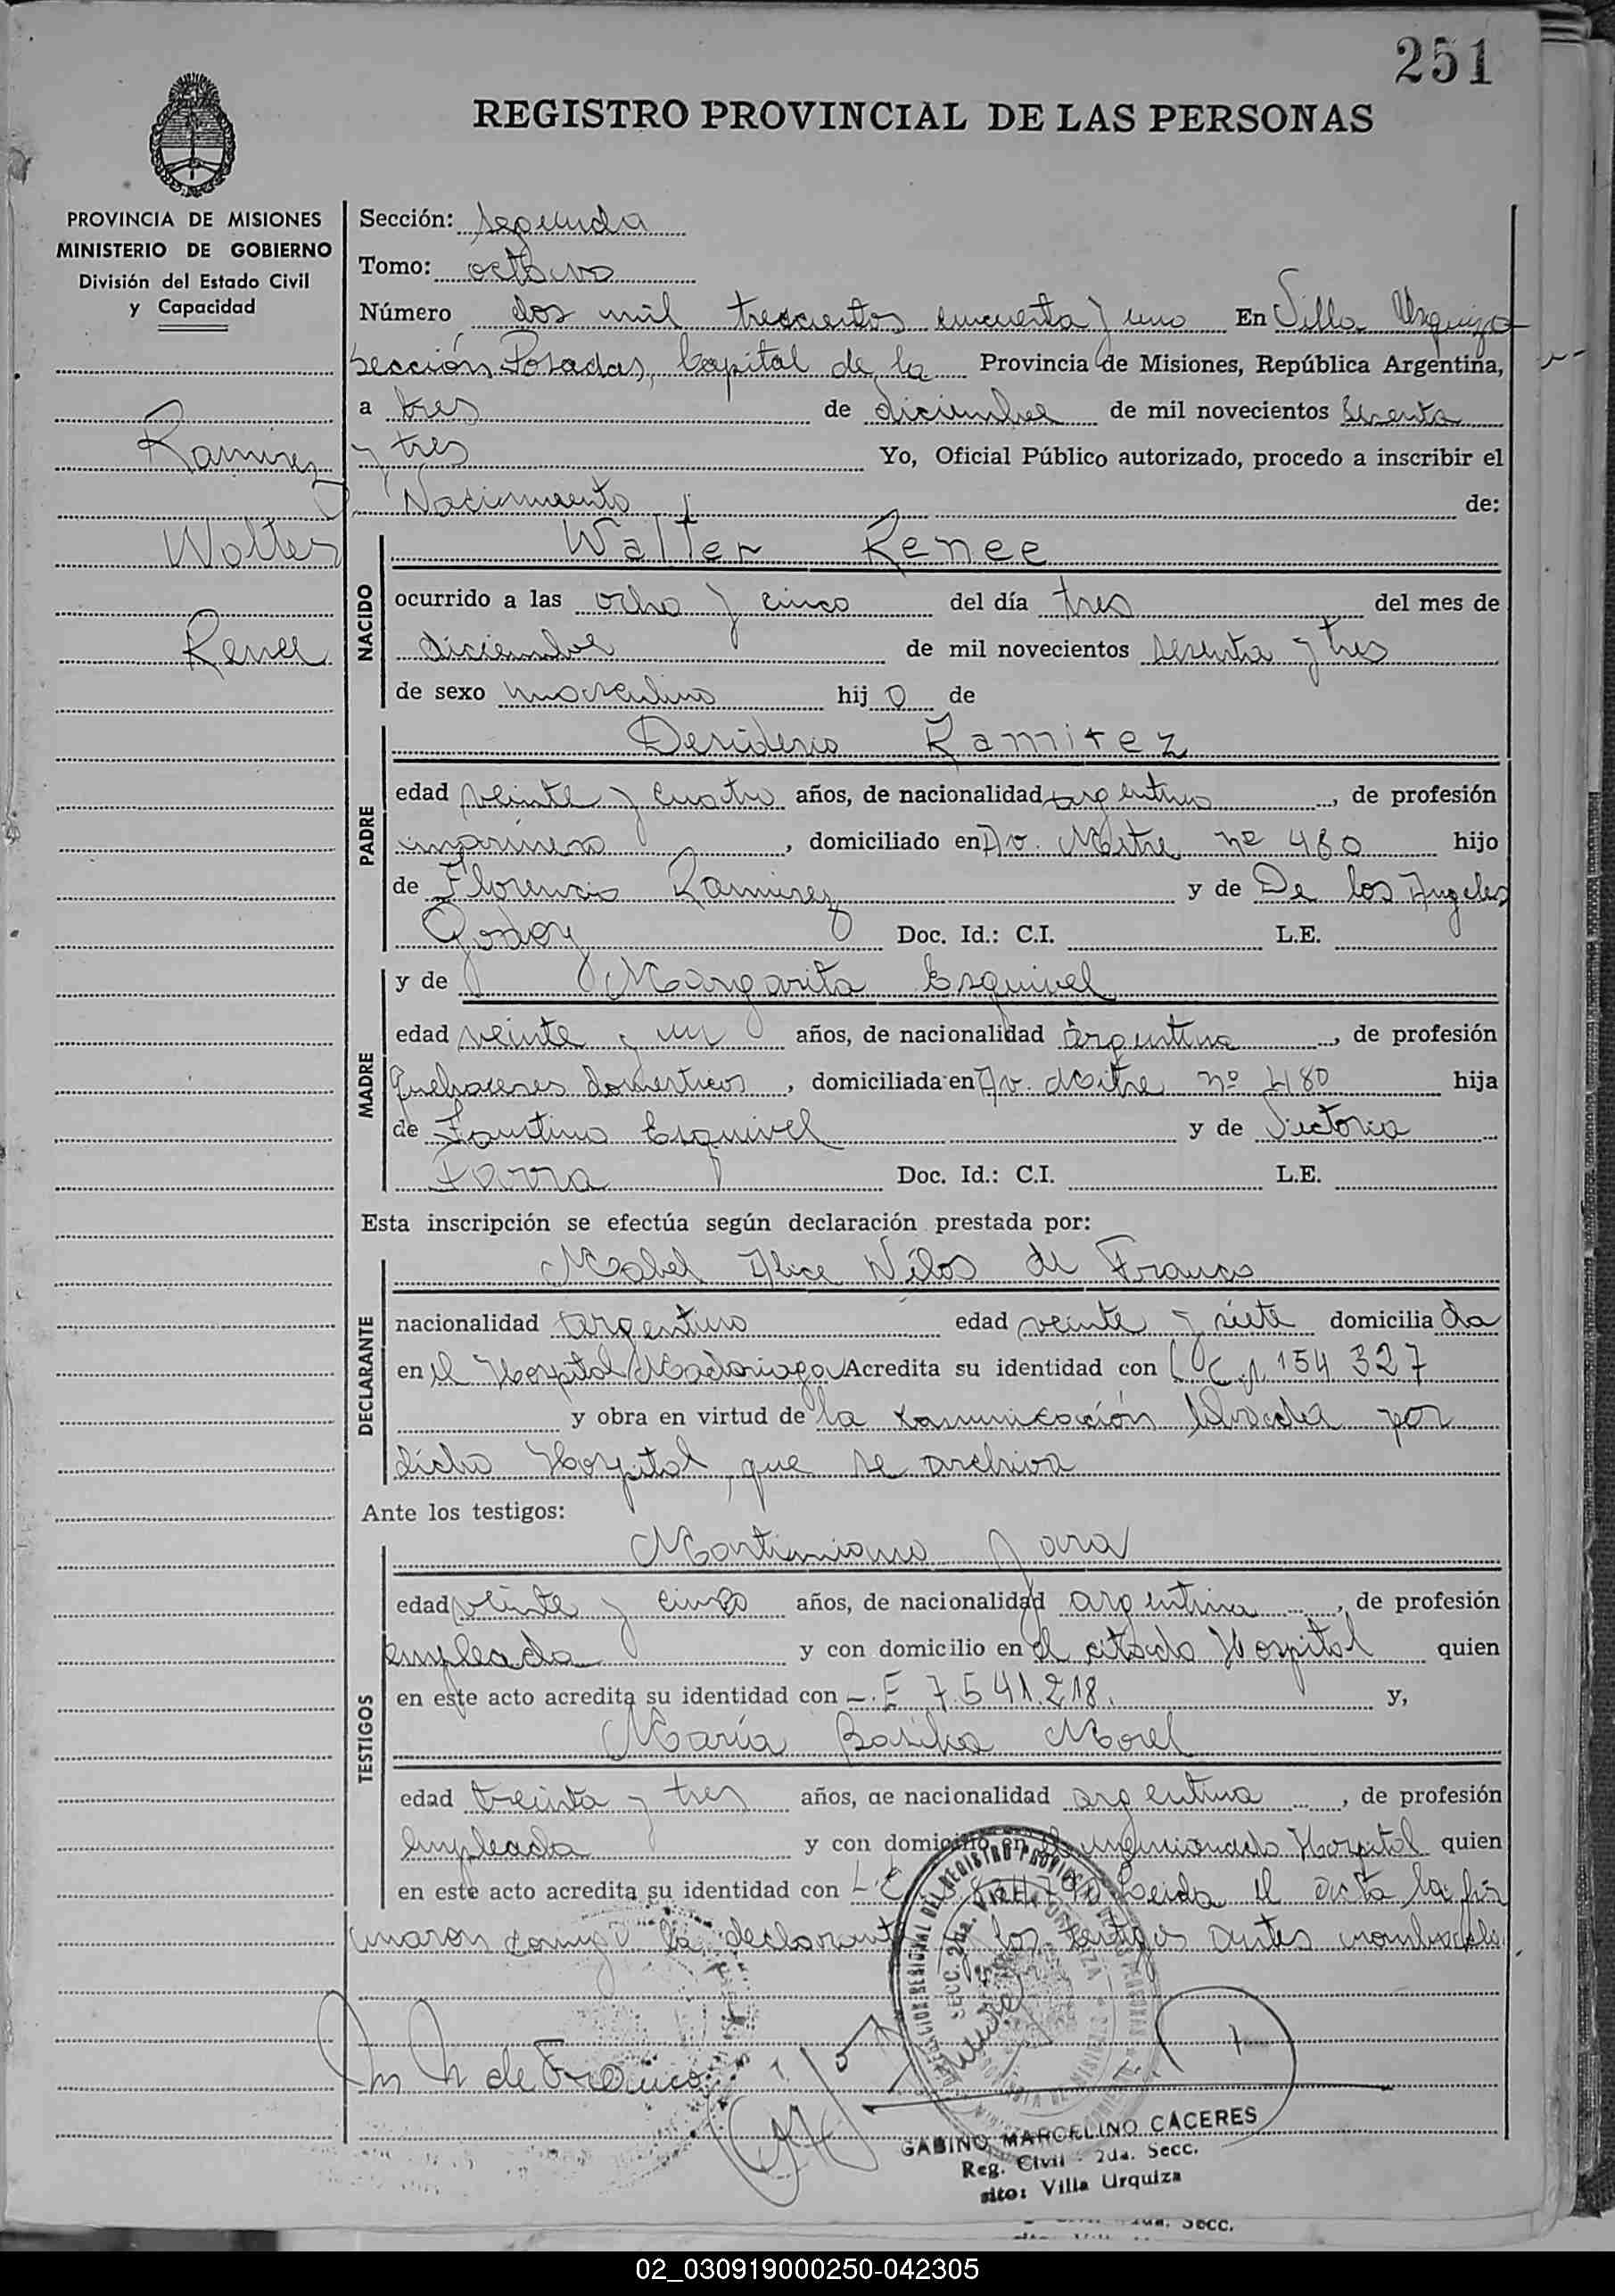 251
REGISTRO PROVINCIAL DE LAS PERSONAS
PROVINCIA DE MISIONES
MINISTERIO DE GOBIERNO
División del Estado Civil
y Capacidad
Ramirez
Walter
Renee
Sección: segunda
Tomo: octavo
Número dos mil trescientos cincuenta y uno En Villa Urquiza
Sección Posadas, Capital de la Provincia de Misiones, República Argentina,
a tres de diciembre de mil novecientos sesenta
y tres Yo, Oficial Público autorizado, procedo a inscribir el
Nacimiento de:
NACIDO
Walter Renee
ocurrido a las ocho y cinco del día tres del mes de
diciembre de mil novecientos sesenta y tres
de sexo masculino hijo de
PADRE
Desiderio Ramirez
edad veinte y cuatro años, de nacionalidad argentino, de profesión
domiciliado en Av. Mitre nº 480 hijo
de Florencio Ramirez y de De los Angeles
Godoy Doc. Id.: C.I. L.E.
MADRE
y de Margarita Esquivel
edad veinte y un años, de nacionalidad argentina, de profesión
quehaceres domesticos, domiciliada en Av. Mitre nº 480 hija
de Faustino Esquivel y de Victoria
Doc. Id.: C.I. L.E.
Esta inscripción se efectúa según declaración prestada por:
DECLARANTE
Mabel de Franco
nacionalidad argentina edad veinte y siete domiciliada
en el Hospital Madariaga Acredita su identidad con
y obra en virtud de la comunicación librada por
dicho Hospital, que se archiva
Ante los testigos:
TESTIGOS
Martiniano Jara
edad veinte y cinco años, de nacionalidad argentina, de profesión
empleado y con domicilio en el citado Hospital quien
en este acto acredita su identidad con L.E 7.541.218. y,
María Morel
edad treinta y tres años, de nacionalidad argentina, de profesión
empleada y con domicilio en el mencionado Hospital quien
en este acto acredita su identidad con Leida el acta la fir
maron conmigo la declarante y los testigos antes nombrados
M N de Franco
GABINO MARCELINO CACERES
Reg. Civil - 2da. Secc.
sito: Villa Urquiza
02_030919000250-042305